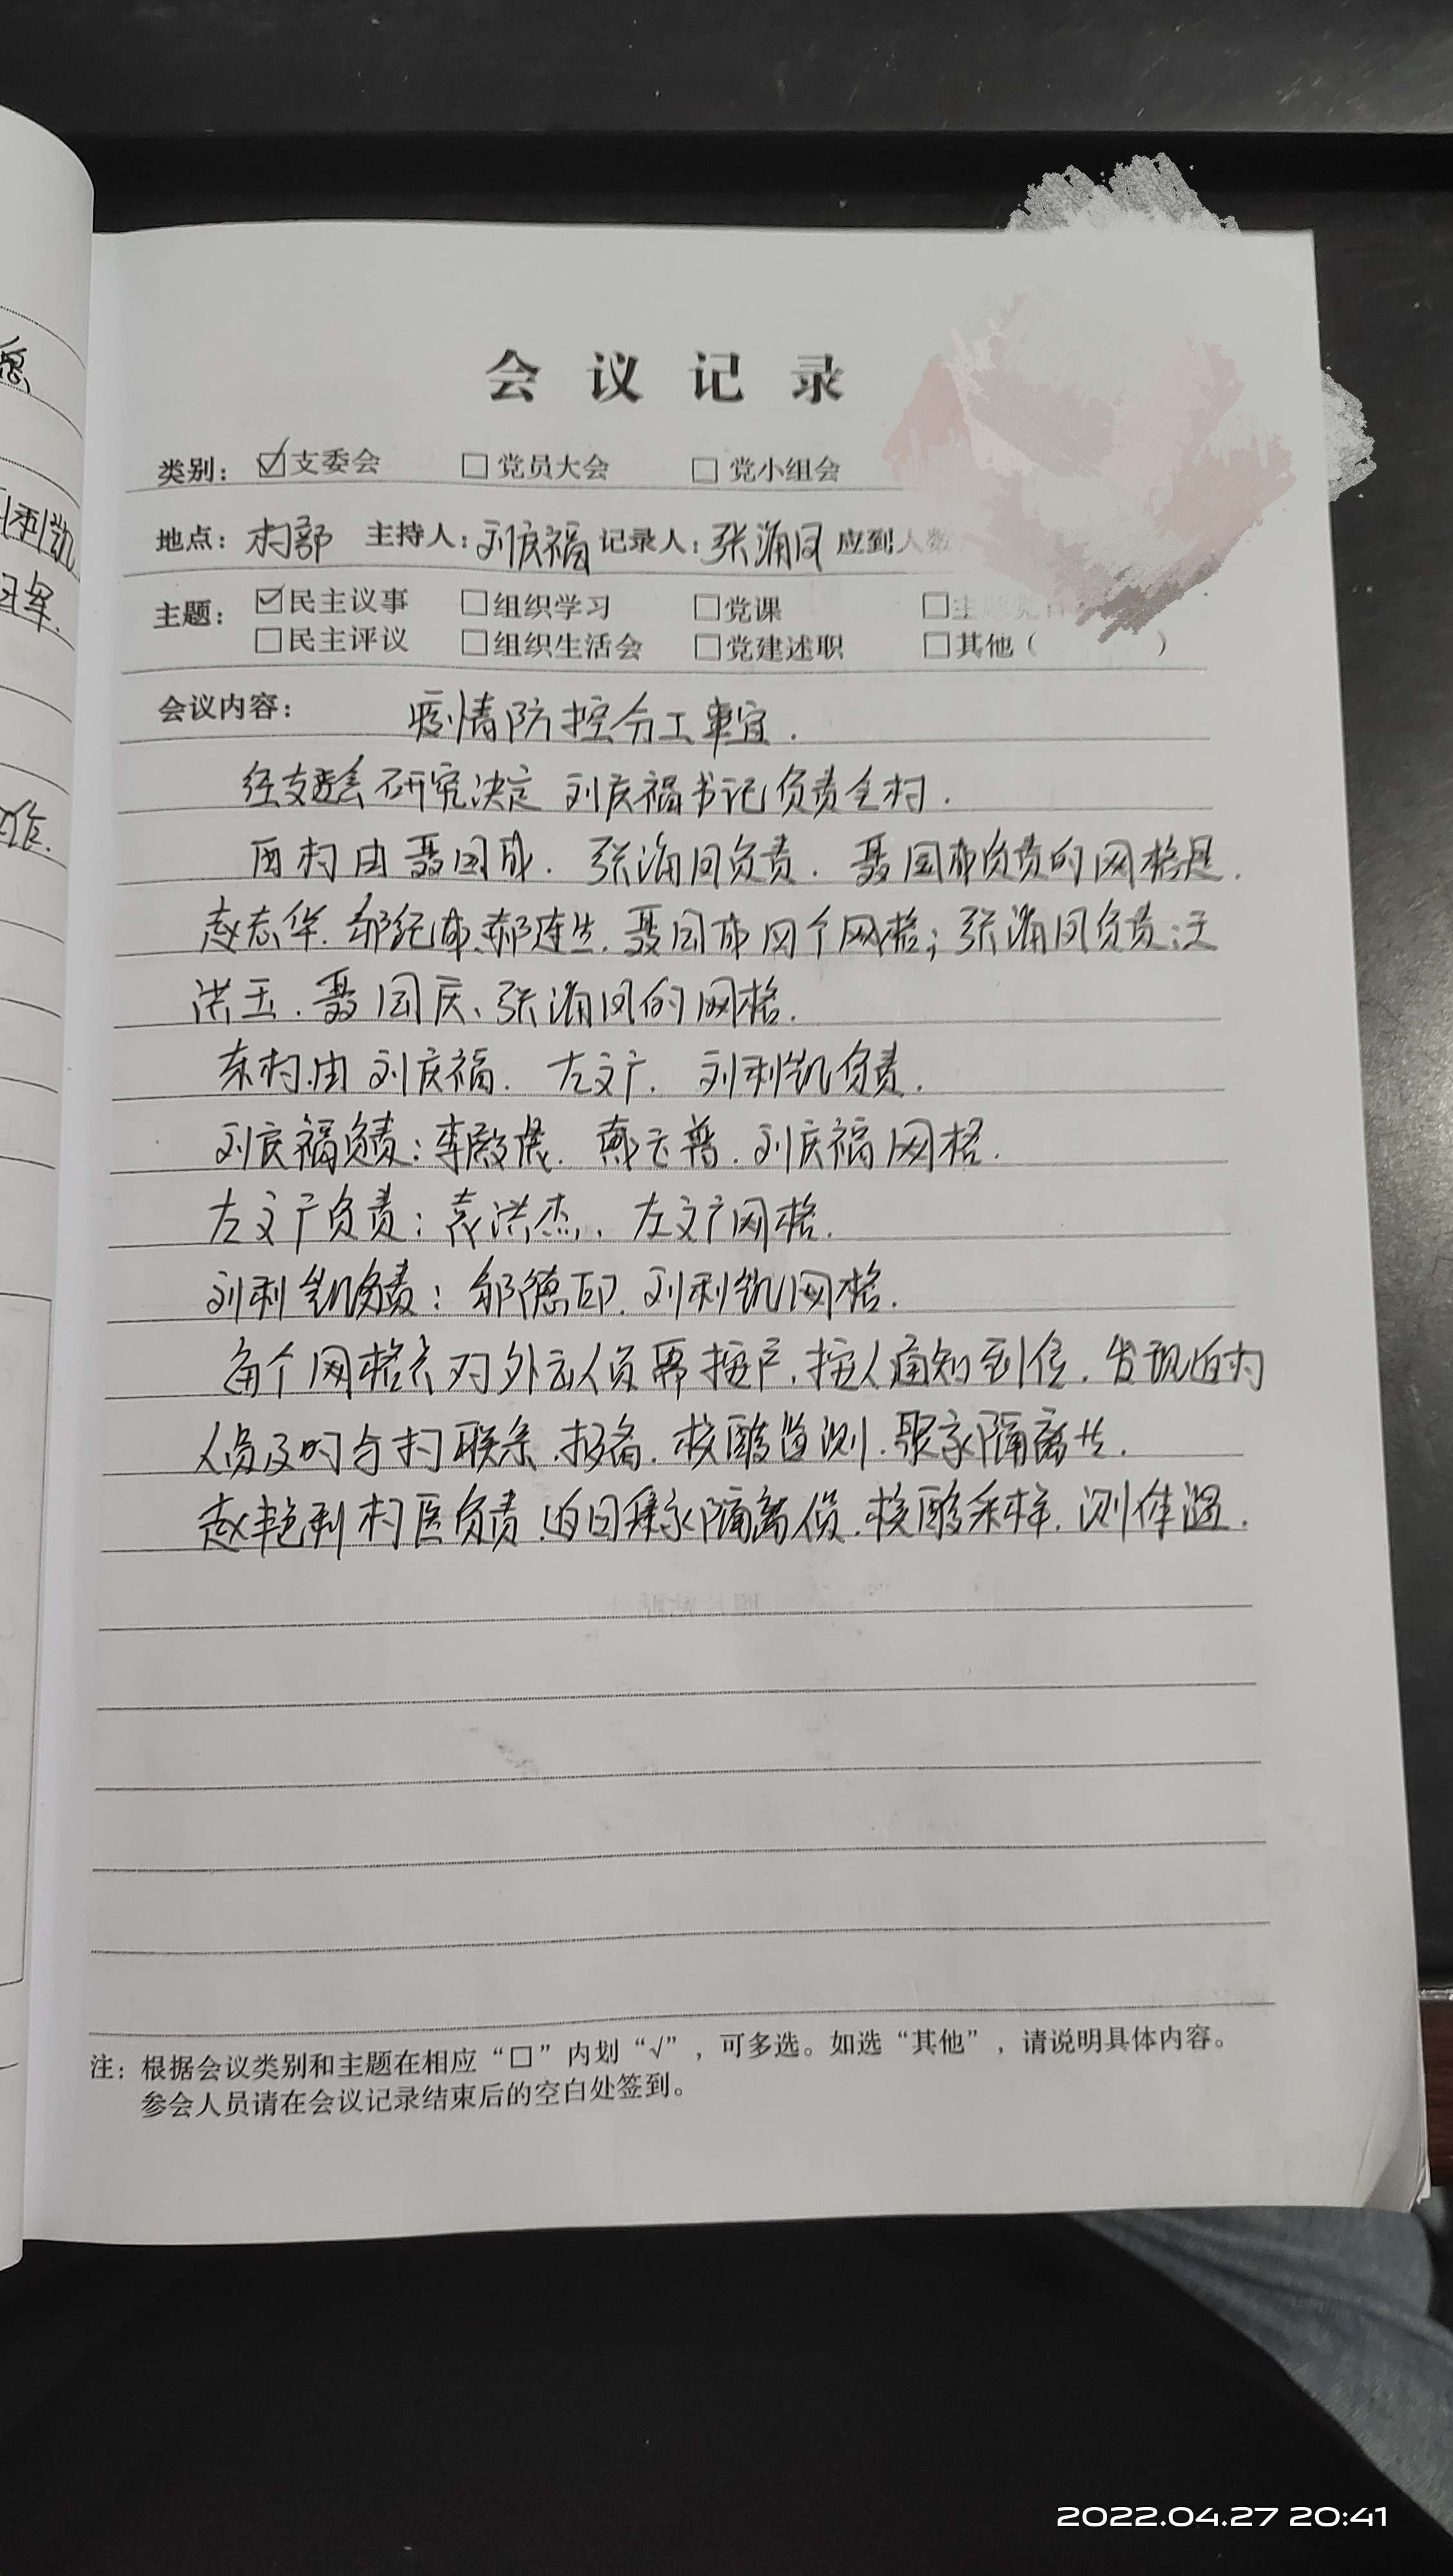 会议记录
类别： ☑支委会 □党员大会 □党小组会
地点：村部 主持人：刘庆福 记录人：张海凤 应到人数
主题： ☑民主议事 □组织学习 □党课 □主题党日
□民主评议 □组织生活会 □党建述职 □其他（ ）
会议内容： 疫情防控分工事宜.
经支委会研究决定 刘庆福书记负责全村.
西村由聂国成. 张海凤负责. 聂国成负责的网格是.
赵志华. 邹纪成、郝连生. 聂国成四个网格；张海凤负责:王
洪玉. 聂国庆、张海凤的网格.
东村.由刘庆福. 左文广. 刘利凯负责.
刘庆福负责：李殿展. 戴云普. 刘庆福网格.
左文广负责：袁洪杰. 左文广网格.
刘利凯负责：邹德印. 刘利凯网格.
每个网格长对外出人员要按户,按人通知到位. 发现返村
人员及时与村联系.报备. 核酸监测.居家隔离等.
赵艳利村医负责.返回居家隔离人员.核酸采样. 测体温.
注：根据会议类别和主题在相应“□”内划“√”，可多选。如选“其他”，请说明具体内容。
参会人员请在会议记录结束后的空白处签到。
2022.04.27 20:41